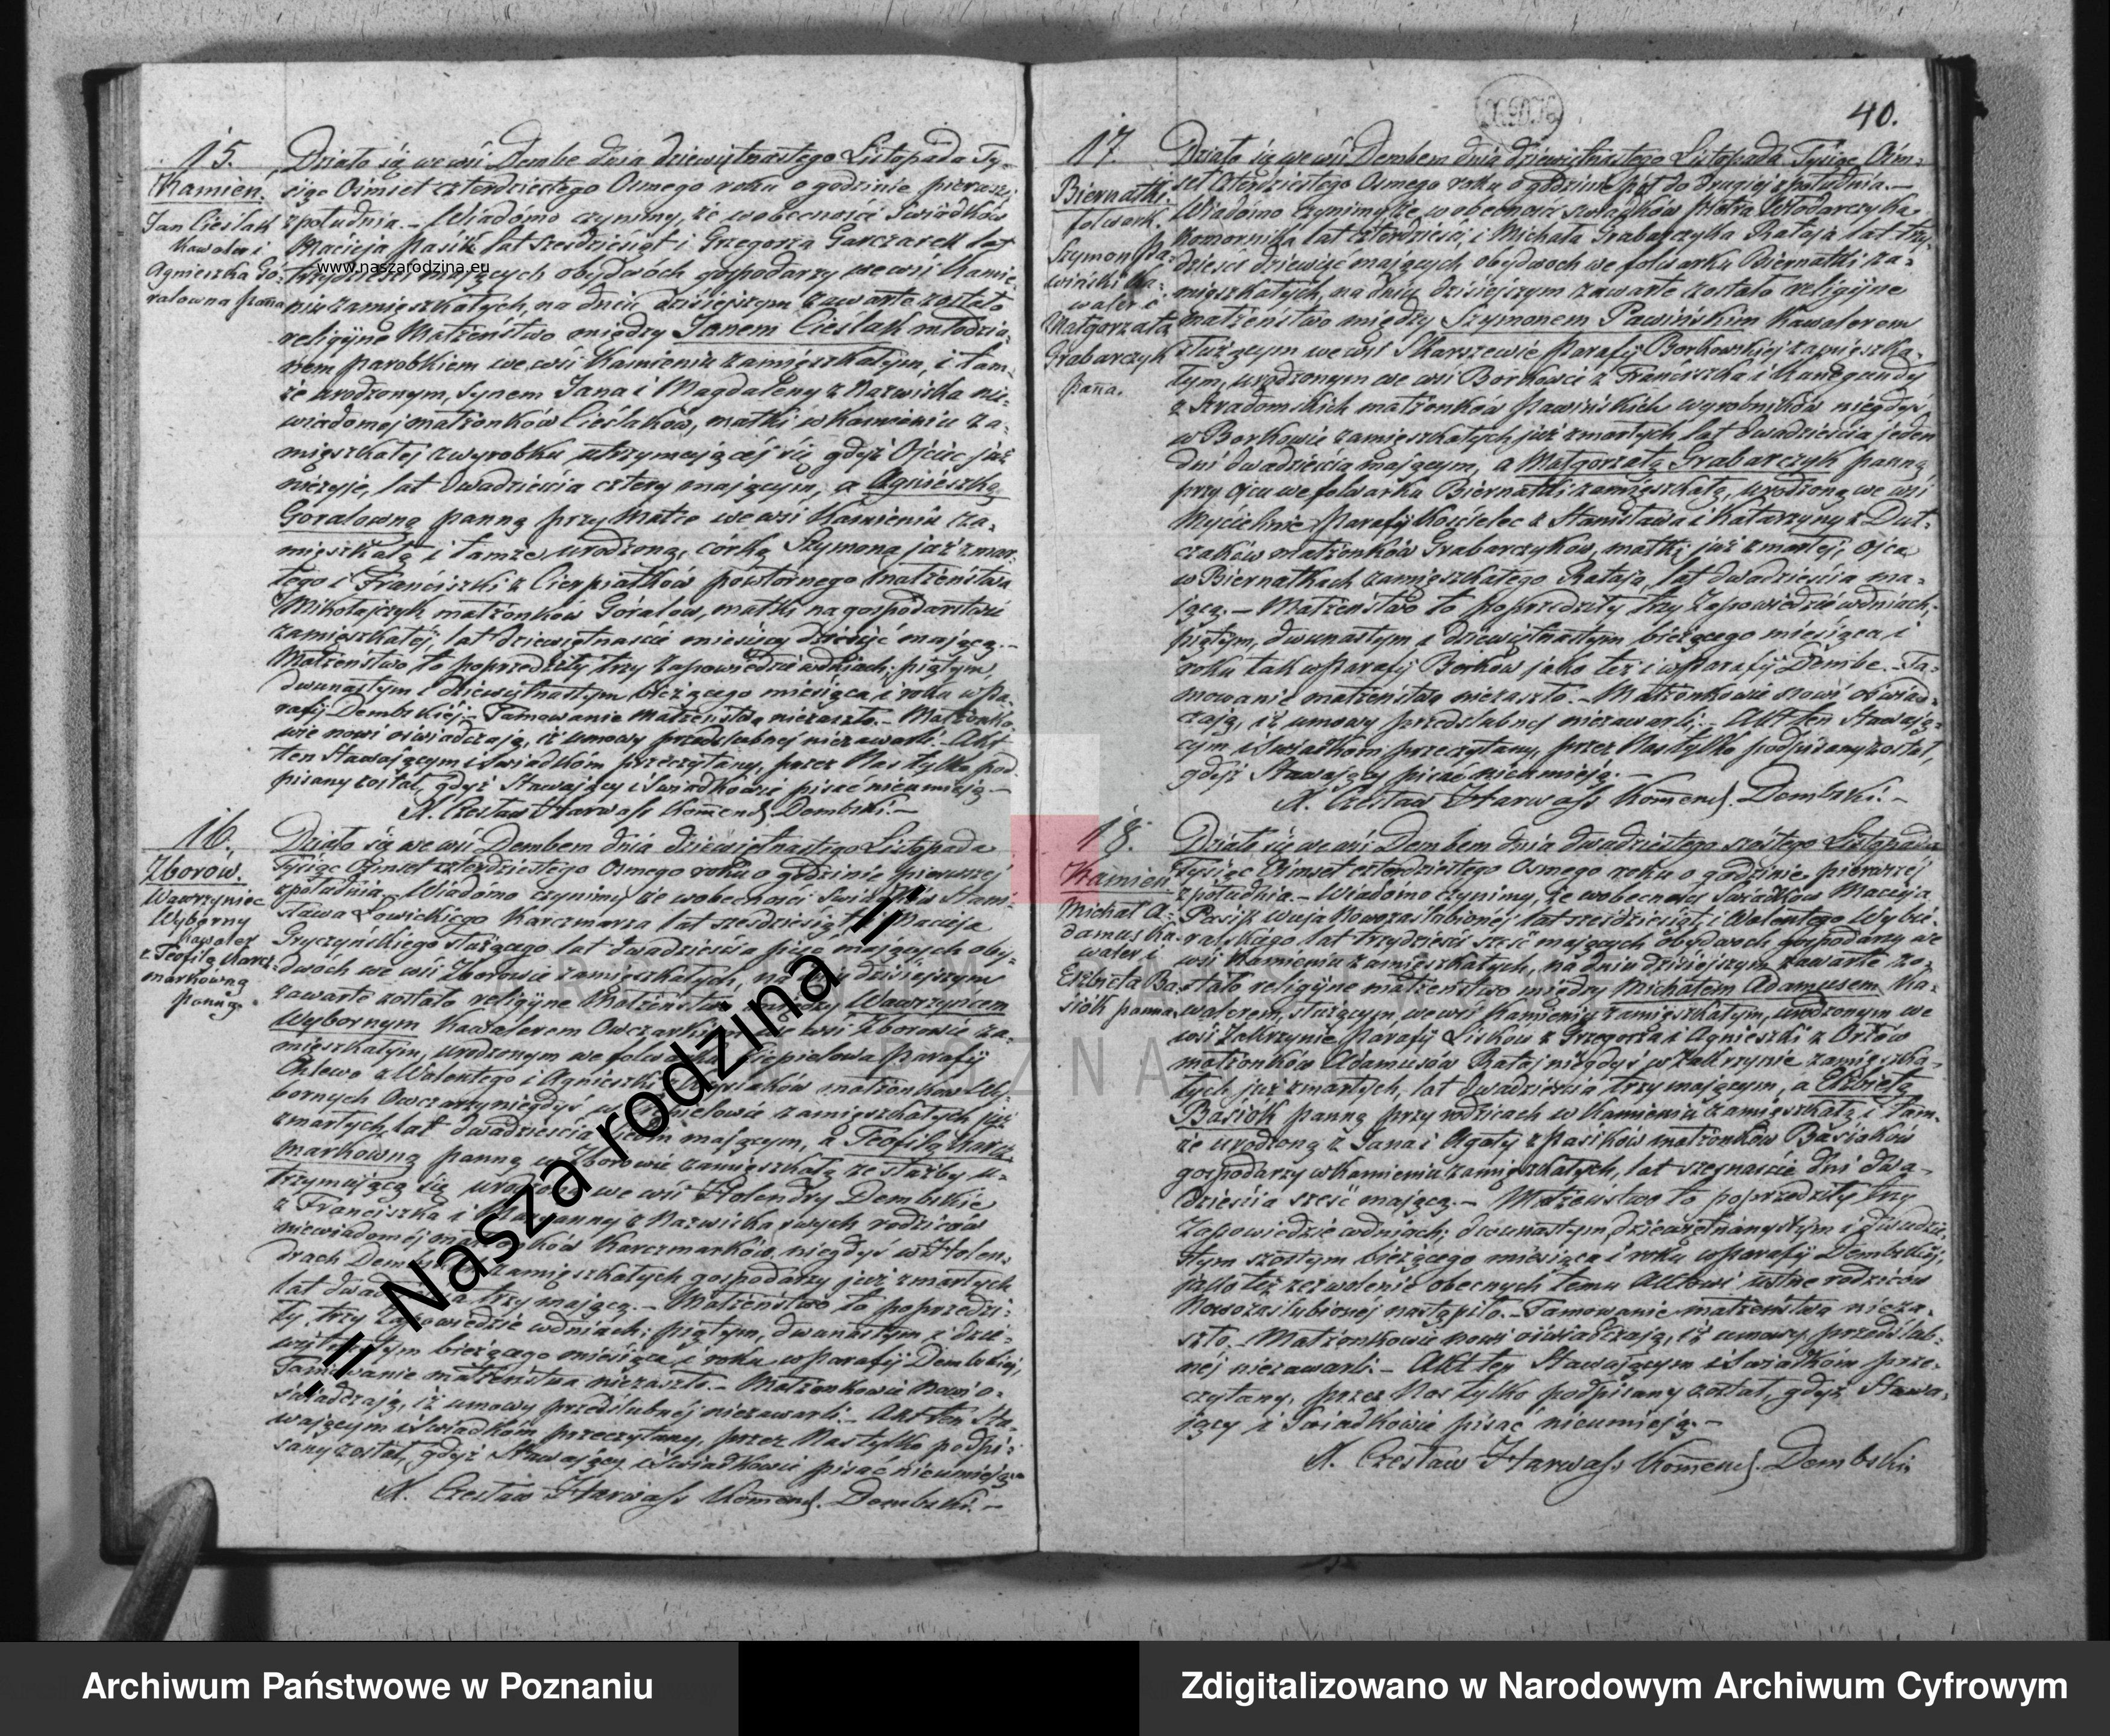 40.
15.
Kamień.
Jan Cieślak
Kawaler i
Agnieszka Go-
ralowna panna
Działo się we wsi Dembe dnia dziewiętnastego Listopada Ty-
siąc Ośmset czterdziestego Osmego roku o godzinie pierwszej
z południa. – Wiadomo czynimy, że w obecności Swiadków
Macieja Pasik lat sześdziesiąt i Grzegorza Garczarek lat
trzydzieści mających obydwóch gospodarzy we wsi Kamie-
niu zamięszkałych, na dniu dzisiejszym zawarte zostało
religijne Małżeństwo między Janem Cieślak młodzia-
nem parobkiem we wsi Kamieniu zamięszkałym, i tam-
że urodzonym, synem Jana i Magdaleny z Nazwiska nie-
wiadomej małżonków Cieślaków, matki w Kamieniu za-
mięszkałej z wyrobku utrzymującej się gdyż Ojciec już
nieżyje, lat dwadzieścia cztery mającym, a Agnieszką
Goralowną panną przy Matce we wsi Kamieniu za-
mięszkałą i tamże urodzoną, córką Szymona już zmar-
łego i Franciszki z Cierpiałków powtórnego małżeństwa
Mikołajczyk, małżonków Góralów, matki na gospodarstwie
zamięszkałej, lat dziewiętnaście miesięcy dziesięć mającą. –
Małżeństwo to poprzedziły trzy zapowiedzie w dniach: piątym,
dwunastym i dziewiętnastym bieżącego miesiąca i roku w Pa-
rafij Dembskiéj. – Tamowanie małżeństwa niezaszło. – Małżonko-
wie nowi oświadczają, iż umowy przedślubnej niezawarli. – Akt
ten Stawającym i Swiadkom przeczytany, przez Nas tylko pod-
pisany został, gdyż Stawający i Swiadkowie pisać nieumieją. –
X. Czesław Harwass Komend. Dembski. –
16.
Zborów.
Wawrzyniec
Wyborny
Kawaler
z Teofilą Karcz-
markówną
panną.
Działo się we wsi Dembem dnia dziewiętnastego Listopada
Tysiąc Ośmset czterdziestego Osmego roku o godzinie pierwszej
z południa. Wiadomo czynimy że w obecności Swiadków Stani-
sława Łowickiego Karczmarza lat sześdziesiąt Macieja
Gryczyńskiego służącego lat dwadzieścia pięć mających oby-
dwóch we wsi Zborowie zamięszkałych, na dniu dzisiejszym
zawarte zostało religijne Małżeństwo między Wawrzyńcem
Wybornym Kawalerem Owczarkiem we wsi Zborowie za-
mięszkałym, urodzonym we folwarku Ciepielowa Parafij
Chlewo z Walentego i Agnieszki małżonków Wy-
bornych Owczarzy niegdyś w Ciepielowie zamięszkałych już
zmarłych, lat dwadzieścia siedm mającym, a Teofilą Karcz-
markówną panną w Zborowie zamięszkałą ze służby u-
trzymującą się urodzoną we wsi Holendry Dembskie
z Franciszka i Maryanny z Nazwiska swych rodziców
niewiadomej małżonków Karczmarków, niegdyś w Holen-
drach Dembskich zamięszkałych gospodarzy już zmarłych
lat dwadzieścia trzy mającą. – Małżeństwo to poprzedzi-
ły trzy Zapowiedzie w dniach: piątym, dwunastym i dzie-
więtnastym bieżącego miesiąca i roku w Parafij Dembskiej,
Tamowanie małżeństwa niezaszło. – Małżonkowie Nowi o-
świadczają, iż umowy przedślubnéj niezawarli. – Akt ten Sta-
wającym i Swiadkom przeczytany, przez Nas tylko podpi-
sany został, gdyż Stawający i Swiadkowie pisać nieumieją. –
X. Czesław Harwass Komend. Dembski. –
17.
Biernatki.
folwark.
Szymon Pa-
wiński Ka-
waler i
Małgorzata
Grabarczyk
panna.
Działo się we wsi Dembem dnia dziewiętnastego Listopada Tysiąc Ośm-
set Czterdziestego Osmego roku o godzinie pół do drugiej z południa. –
Wiadomo czynimy, że w obecności swiadków Piotra Włodarczyka
Komornika lat czterdzieści, i Michała Grabarczyka Rataja lat trzy-
dzieści dziewięć mających obydwoch we folwarku Biernatki za-
mięszkałych, na dniu dzisiejszym zawarte zostało religijne
małżeństwo między Szymonem Pawińskim Kawalerem
służącym we wsi Skarszewie Parafij Borkowskiej zamięszka-
łym, urodzonym we wsi Borkowie z Franciszka i Kunegundy
z Stradomskich małżonków Pawińskich wyrobników niegdyś
w Borkowie zamięszkałych już zmarłych, lat dwadzieścia jeden
dni dwadzieścia mającym, a Małgorzatą Grabarczyk panną
przy ojcu we folwarku Biernatki zamięszkałą, urodzoną we wsi
Mycielinie Parafij Kościelec z Stanisława i Katarzyny z Dut-
czaków małżonków Grabarczyków, matki już zmarłej, ojca
w Biernatkach zamięszkałego Rataja, lat dwadzieścia ma-
jącą. – Małżeństwo to poprzedziły trzy Zapowiedzie w dniach:
piątym, dwunastym i dziewiętnastym bieżącego miesiąca i
roku tak w Parafij Borków jako też i w Parafij Dembe. Ta-
mowanie małżeństwa niezaszło. – Małżonkowie nowi oświad-
czają, iż umowy przedślubnej niezawarli. – Akt ten Stawają-
cym i Swiadkom przeczytany, przez Nas tylko podpisany został,
gdyż Stawający pisać nieumieją. –
X. Czesław Harwass Komend. Dembski. –
18.
Kamień
Michał A-
damus Ka-
waler i
Elżbieta Ba-
siak panna
Działo się we wsi Dembem dnia dwudziestego szóstego Listopada
Tysiąc Ośmset czterdziestego Osmego roku o godzinie pierwszej
z południa. – Wiadomo czynimy, że w obecności Swiadków Macieja
Pasik wuja Nowozaślubionej lat sześdziesiąt, i Walentego Wybie-
ralskiego lat trzydzieści sześć mających obydwoch gospodarzy we
wsi Kamieniu zamięszkałych, na dniu dzisiejszym zawarte zo-
stało religijne małżeństwo między Michałem Adamusem Ka-
walerem, służącym we wsi Kamieniu zamięszkałym, urodzonym we
wsi Zakrzynie Parafij Lisków z Grzegorza i Agnieszki z Orłów
małżonków Adamusów Rataj niegdyś w Zakrzynie zamięszka-
łych już zmarłych, lat dwadzieścia trzy mającym, a Elżbietą
Basiak panną przy rodzicach w Kamieniu zamięszkałą i tam-
że urodzoną z Jana i Agaty z Pasików małżonków Basiaków
gospodarzy w Kamieniu zamięszkałych, lat szesnaście dni dwa-
dzieścia sześć mającą. – Małżeństwo to poprzedziły trzy
Zapowiedzie w dniach: dwunastym, dziewiętnanystym i dwudzie-
stym szóstym bieżącego miesiąca i roku w Parafij Dembskiej;
jako też zezwolenie obecnych temu Aktowi ustne rodziców
Nowozaślubionej nastąpiło. – Tamowanie małżeństwa nieza-
szło. – Małżonkowie nowi oświadczają, iż umowy przedślub-
nej niezawarli. – Akt ten Stawającym i Swiadkom prze-
czytany, przez Nas tylko podpisany został, gdyż Stawa-
jący i Swiadkowie pisać nieumieją. –
X. Czesław Harwass Komend. Dembski
www.naszarodzina.eu
.:= Nasza rodzina =
Archiwum Państwowe w Poznaniu
Zdigitalizowano w Narodowym Archiwum Cyfrowym